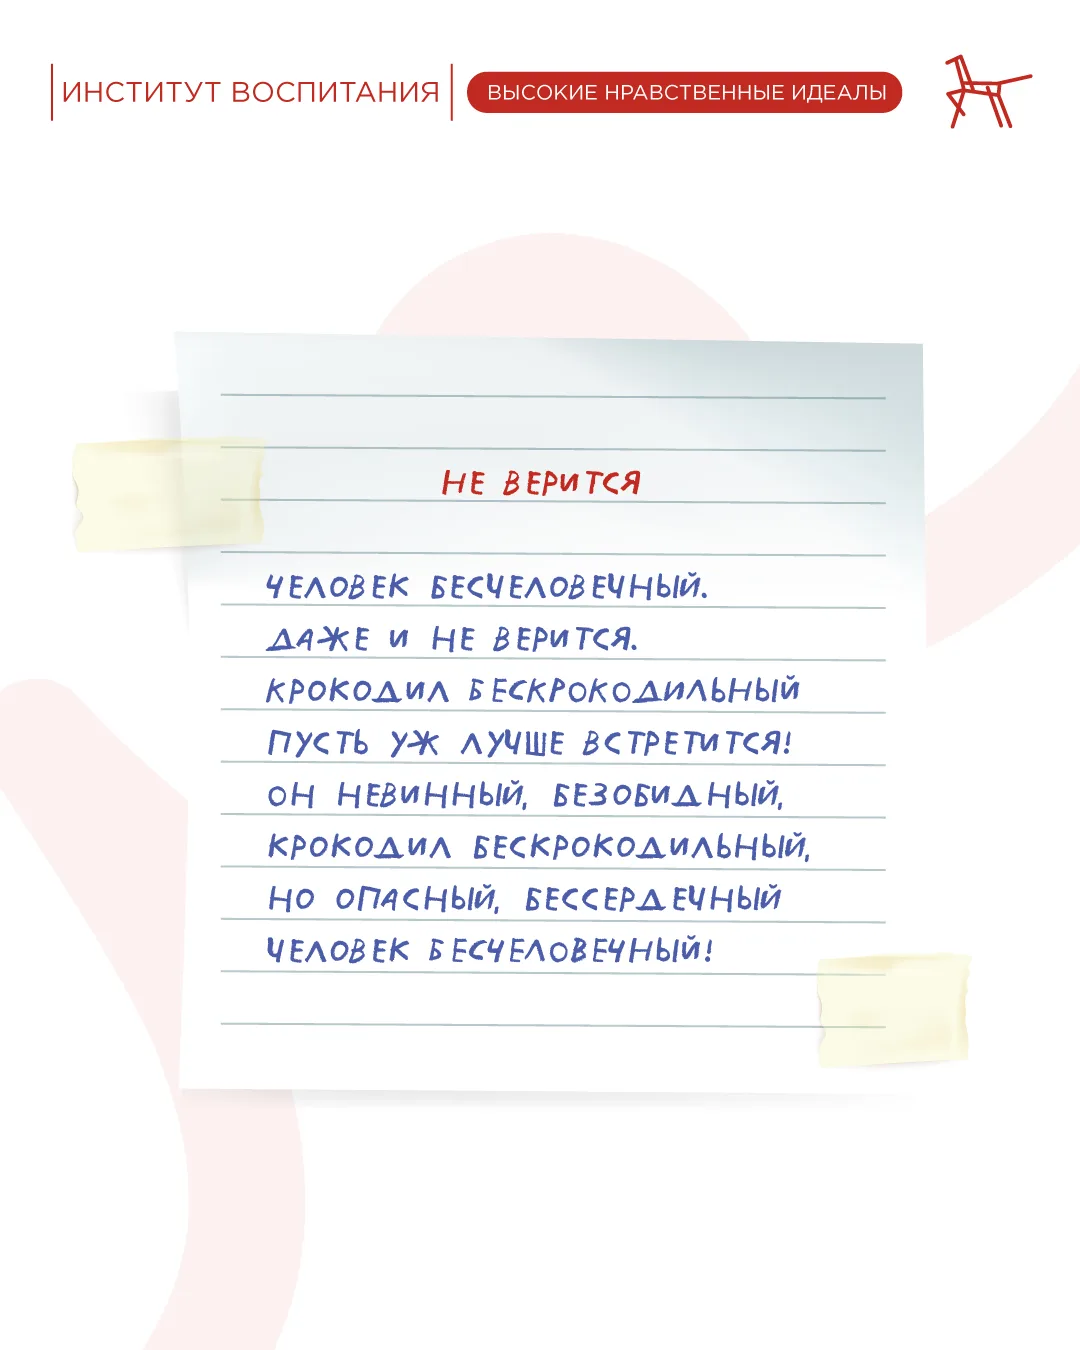 ИНСТИТУТ ВОСПИТАНИЯ
ВЫСОКИЕ НРАВСТВЕННЫЕ ИДЕАЛЫ
НЕ ВЕРИТСЯ
ЧЕЛОВЕК БЕСЧЕЛОВЕЧНЫЙ.
ДАЖЕ И НЕ ВЕРИТСЯ.
КРОКОДИЛ БЕСКРОКОДИЛЬНЫЙ
ПУСТЬ УЖ ЛУЧШЕ ВСТРЕТИТСЯ!
ОН НЕВИННЫЙ, БЕЗОБИДНЫЙ,
КРОКОДИЛ БЕСКРОКОДИЛЬНЫЙ,
НО ОПАСНЫЙ, БЕССЕРДЕЧНЫЙ
ЧЕЛОВЕК БЕСЧЕЛОВЕЧНЫЙ!